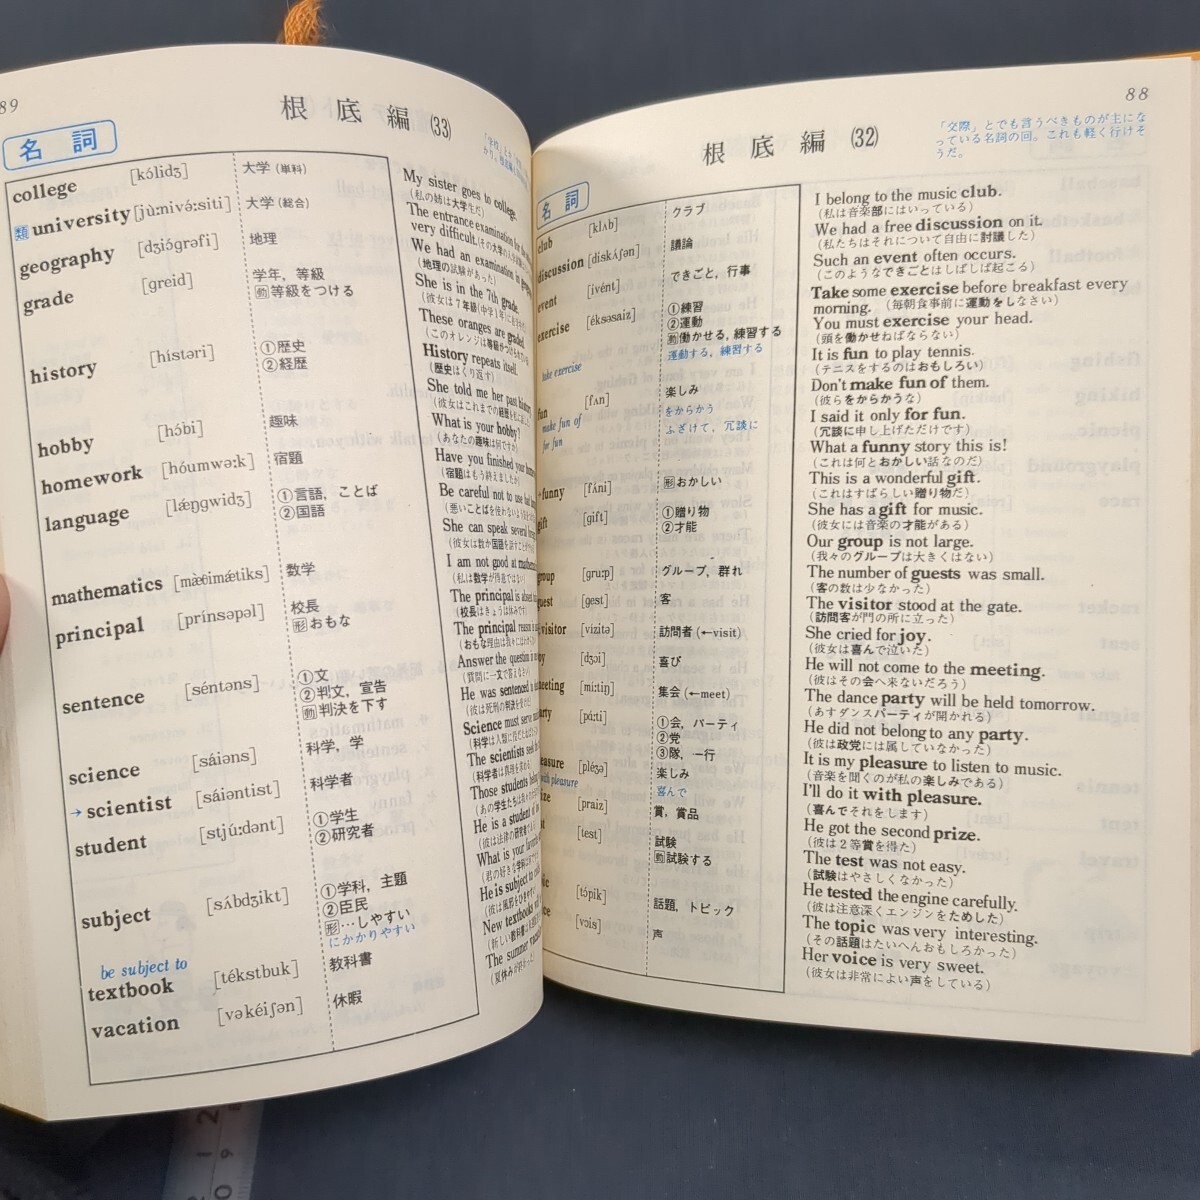 89
根底編 (33)
名詞
college [kɔ́lidʒ] 大学 (単科)
類 university [jùːnivə́ːsiti] 大学 (総合)
geography [dʒiɔ́grəfi] 地理
grade [greid] 学年，等級
動 等級をつける
history [hístəri] ①歴史
②経歴
hobby [hɔ́bi] 趣味
homework [hóumwəːk] 宿題
language [lǽŋgwidʒ] ①言語，ことば
②国語
mathematics [mæ̀θimǽtiks] 数学
principal [prínsəpəl] 校長
形 おもな
sentence [séntəns] ①文
②判文，宣告
動 判決を下す
science [sáiəns] 科学，学
→ scientist [sáiəntist] 科学者
student [stjúːdənt] ①学生
②研究者
subject [sʌ́bdʒikt] ①学科，主題
②臣民
形 …しやすい
be subject to にかかりやすい
textbook [tékstbuk] 教科書
vacation [vəkéiʃən] 休暇
My sister goes to college.
(私の姉は大学生だ)
The entrance examination for the
very difficult. (その大学の入学試験は
We had an examination in
(地理の試験があった)
She is in the 7th grade.
(彼女は７年級(中学１年)に
These oranges are graded.
(このオレンジは等級が
History repeats itself.
(歴史はくり返す)
She told me her past history.
(彼女はこれまでの経歴を
What is your hobby?
(あなたの趣味は何ですか)
Have you finished your
(宿題はもう終えましたか)
Be careful not to use bad
(悪いことばを使わないよう
She can speak several
(彼女は数か国語を話すことが
I am not good at
(私は数学が得意ではない)
The principal is absent
(校長はきょうは休みです)
The principal reason is
(おもな理由は
Answer the question in
(質問に一文で答えなさい)
He was sentenced to
(彼は死刑の判決を
Science must serve
(科学は人類に
The scientists seek
(科学者は真理を
Those students
(あの学生たちは
He is a student of
(彼は法律の研究者
What is your favorite
(君の好きな学科は
He is subject to
(彼は風邪を
New textbooks
(新しい教科書
The summer
(夏休みが
88
根底編 (32)
「交際」とでも言うべきものが主にな
っている名詞の回。これも軽く行けそ
うだ。
名詞
club [klʌb] クラブ
discussion [diskʌ́ʃən] 議論
event [ivént] できごと，行事
exercise [éksəsaiz] ①練習
②運動
動 働かせる，練習する
take exercise 運動する，練習する
fun [fʌn] 楽しみ
make fun of をからかう
for fun ふざけて，冗談に
funny [fʌ́ni] 形 おかしい
gift [gift] ①贈り物
②才能
group [gruːp] グループ，群れ
guest [gest] 客
visitor [vízitə] 訪問者 (←visit)
[dʒɔi] 喜び
meeting [míːtiŋ] 集会 (←meet)
party [pɑ́ːti] ①会，パーティ
②党
③隊，一行
[pléʒə] 楽しみ
with pleasure 喜んで
[praiz] 賞，賞品
[test] 試験
動 試験する
[tɔ́pik] 話題，トピック
[vɔis] 声
I belong to the music club.
(私は音楽部にはいっている)
We had a free discussion on it.
(私たちはそれについて自由に討議した)
Such an event often occurs.
(このようなできごとはしばしば起こる)
Take some exercise before breakfast every
morning. (毎朝食事前に運動をしなさい)
You must exercise your head.
(頭を働かせねばならない)
It is fun to play tennis.
(テニスをするのはおもしろい)
Don't make fun of them.
(彼らをからかうな)
I said it only for fun.
(冗談に申し上げただけです)
What a funny story this is!
(これは何とおかしい話なのだ)
This is a wonderful gift.
(これはすばらしい贈り物だ)
She has a gift for music.
(彼女には音楽の才能がある)
Our group is not large.
(我々のグループは大きくはない)
The number of guests was small.
(客の数は少なかった)
The visitor stood at the gate.
(訪問客が門の所に立った)
She cried for joy.
(彼女は喜んで泣いた)
He will not come to the meeting.
(彼はその会へ来ないだろう)
The dance party will be held tomorrow.
(あすダンスパーティが開かれる)
He did not belong to any party.
(彼は政党には属していなかった)
It is my pleasure to listen to music.
(音楽を聞くのが私の楽しみである)
I'll do it with pleasure.
(喜んでそれをします)
He got the second prize.
(彼は２等賞を得た)
The test was not easy.
(試験はやさしくなかった)
He tested the engine carefully.
(彼は注意深くエンジンをためした)
The topic was very interesting.
(その話題はたいへんおもしろかった)
Her voice is very sweet.
(彼女は非常によい声をしている)